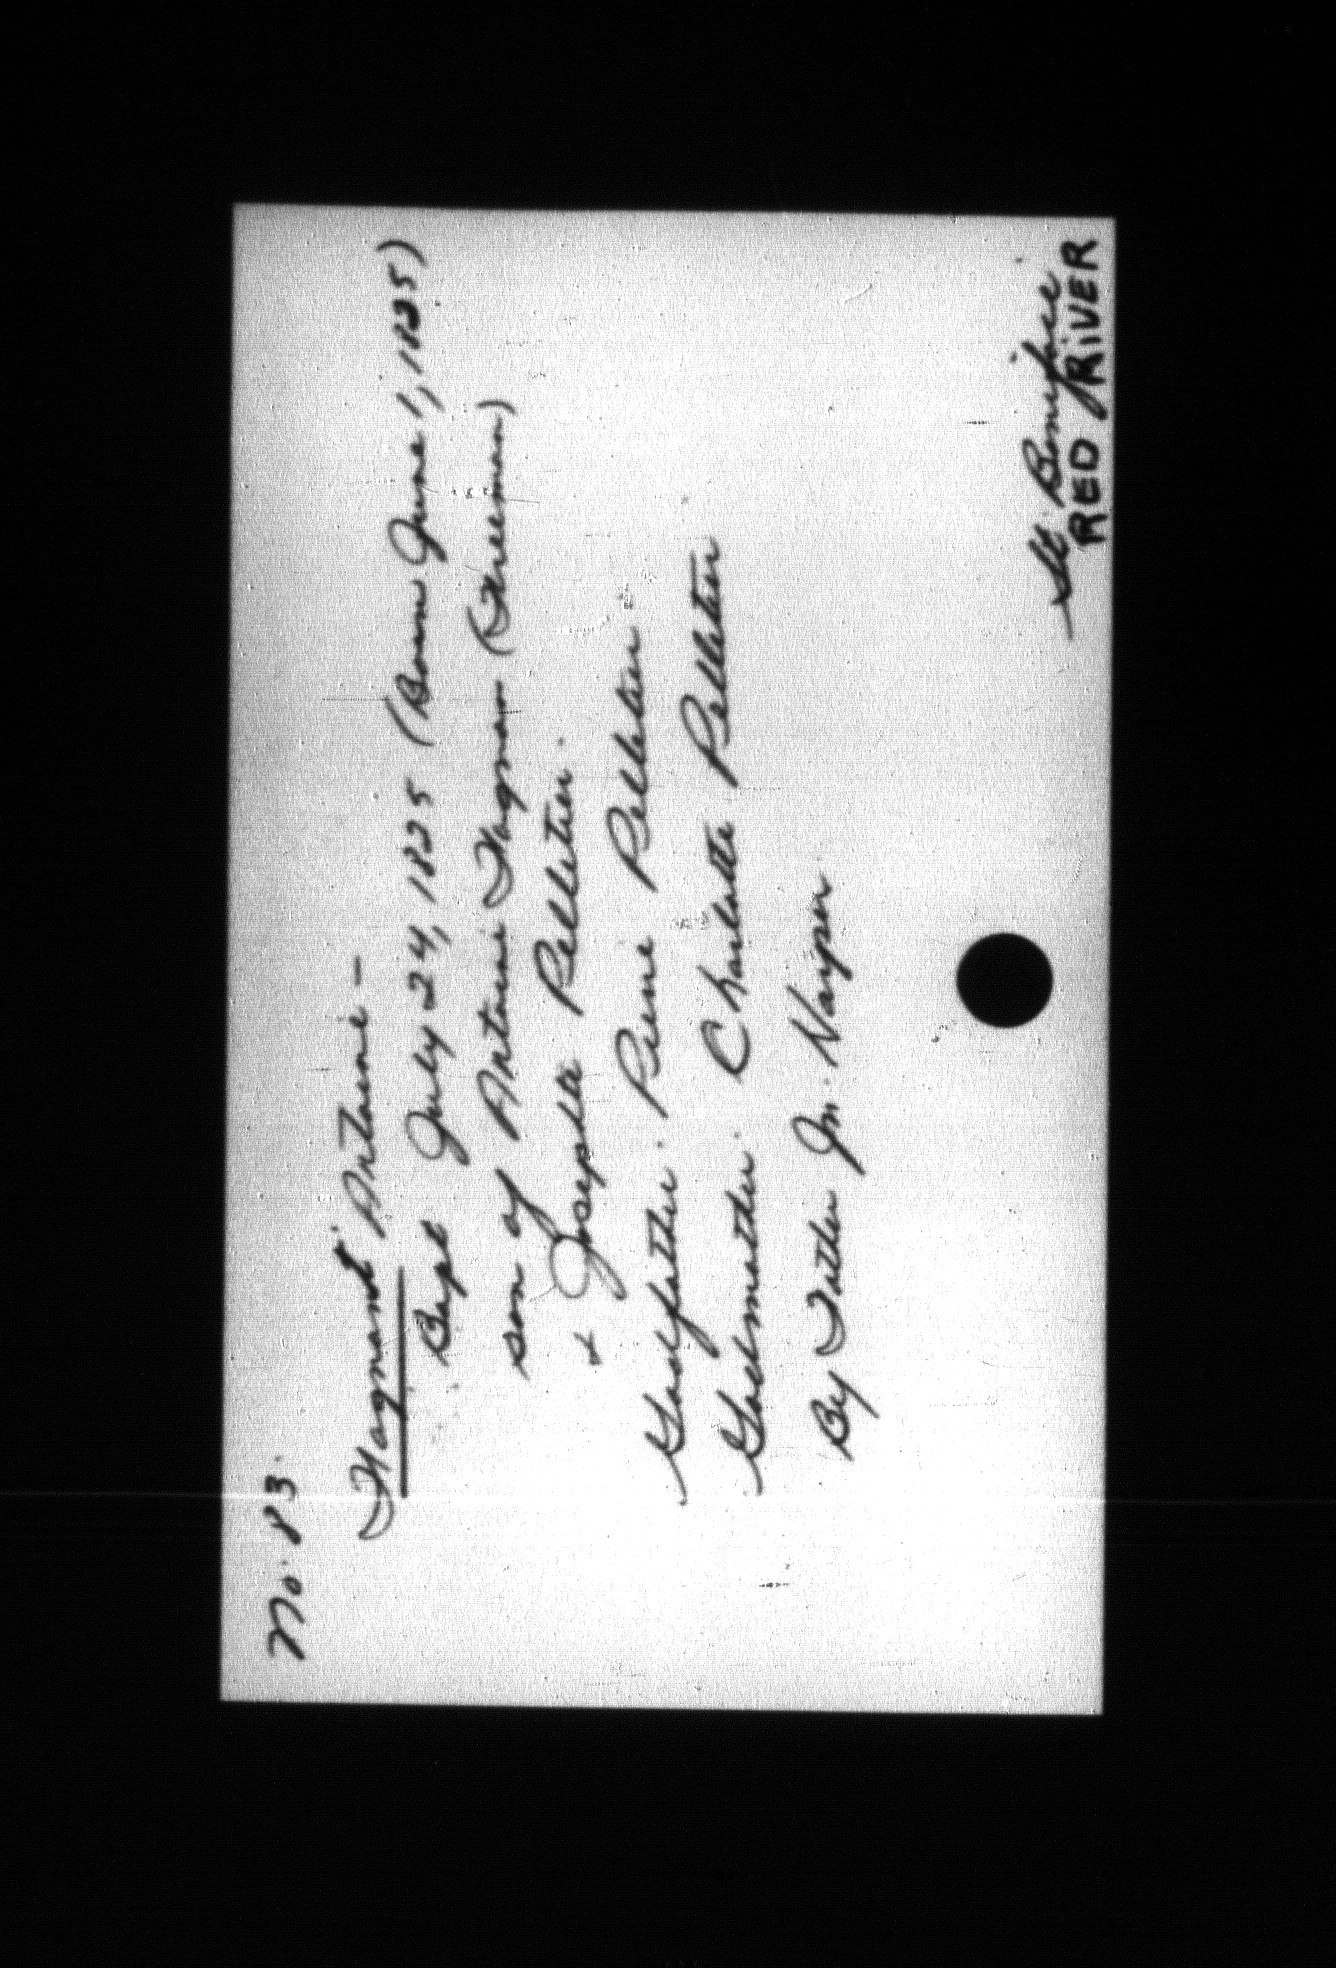 No. 83.
Fagnant Antoine -
Bapt July 24, 1825 (Born June 1, 1825)
son of Antoine Fagnan (Freeman)
+ Josephte Pelletier.
Godfather. Pierre Pelletier
Godmother. Charlotte Pelletier
By Father Jn. Harper
St. Boniface
RED RIVER